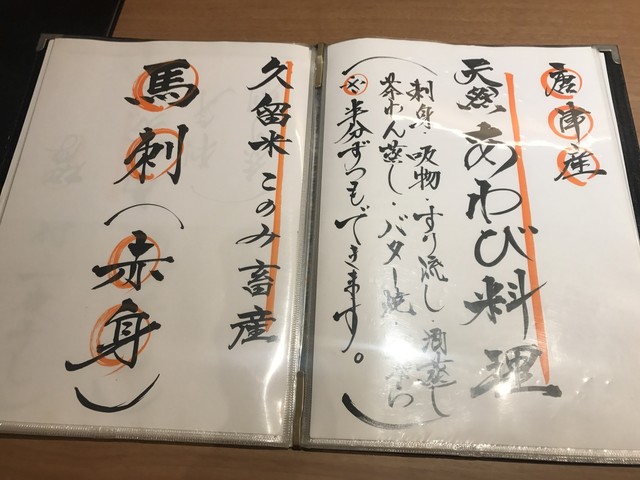 唐津産
天然あわび料理
(刺身・吸物・すり流し・酒蒸し
茶わん蒸し・バター焼・
※半分ずつもできます。)
久留米このみ畜産
馬刺(赤身)